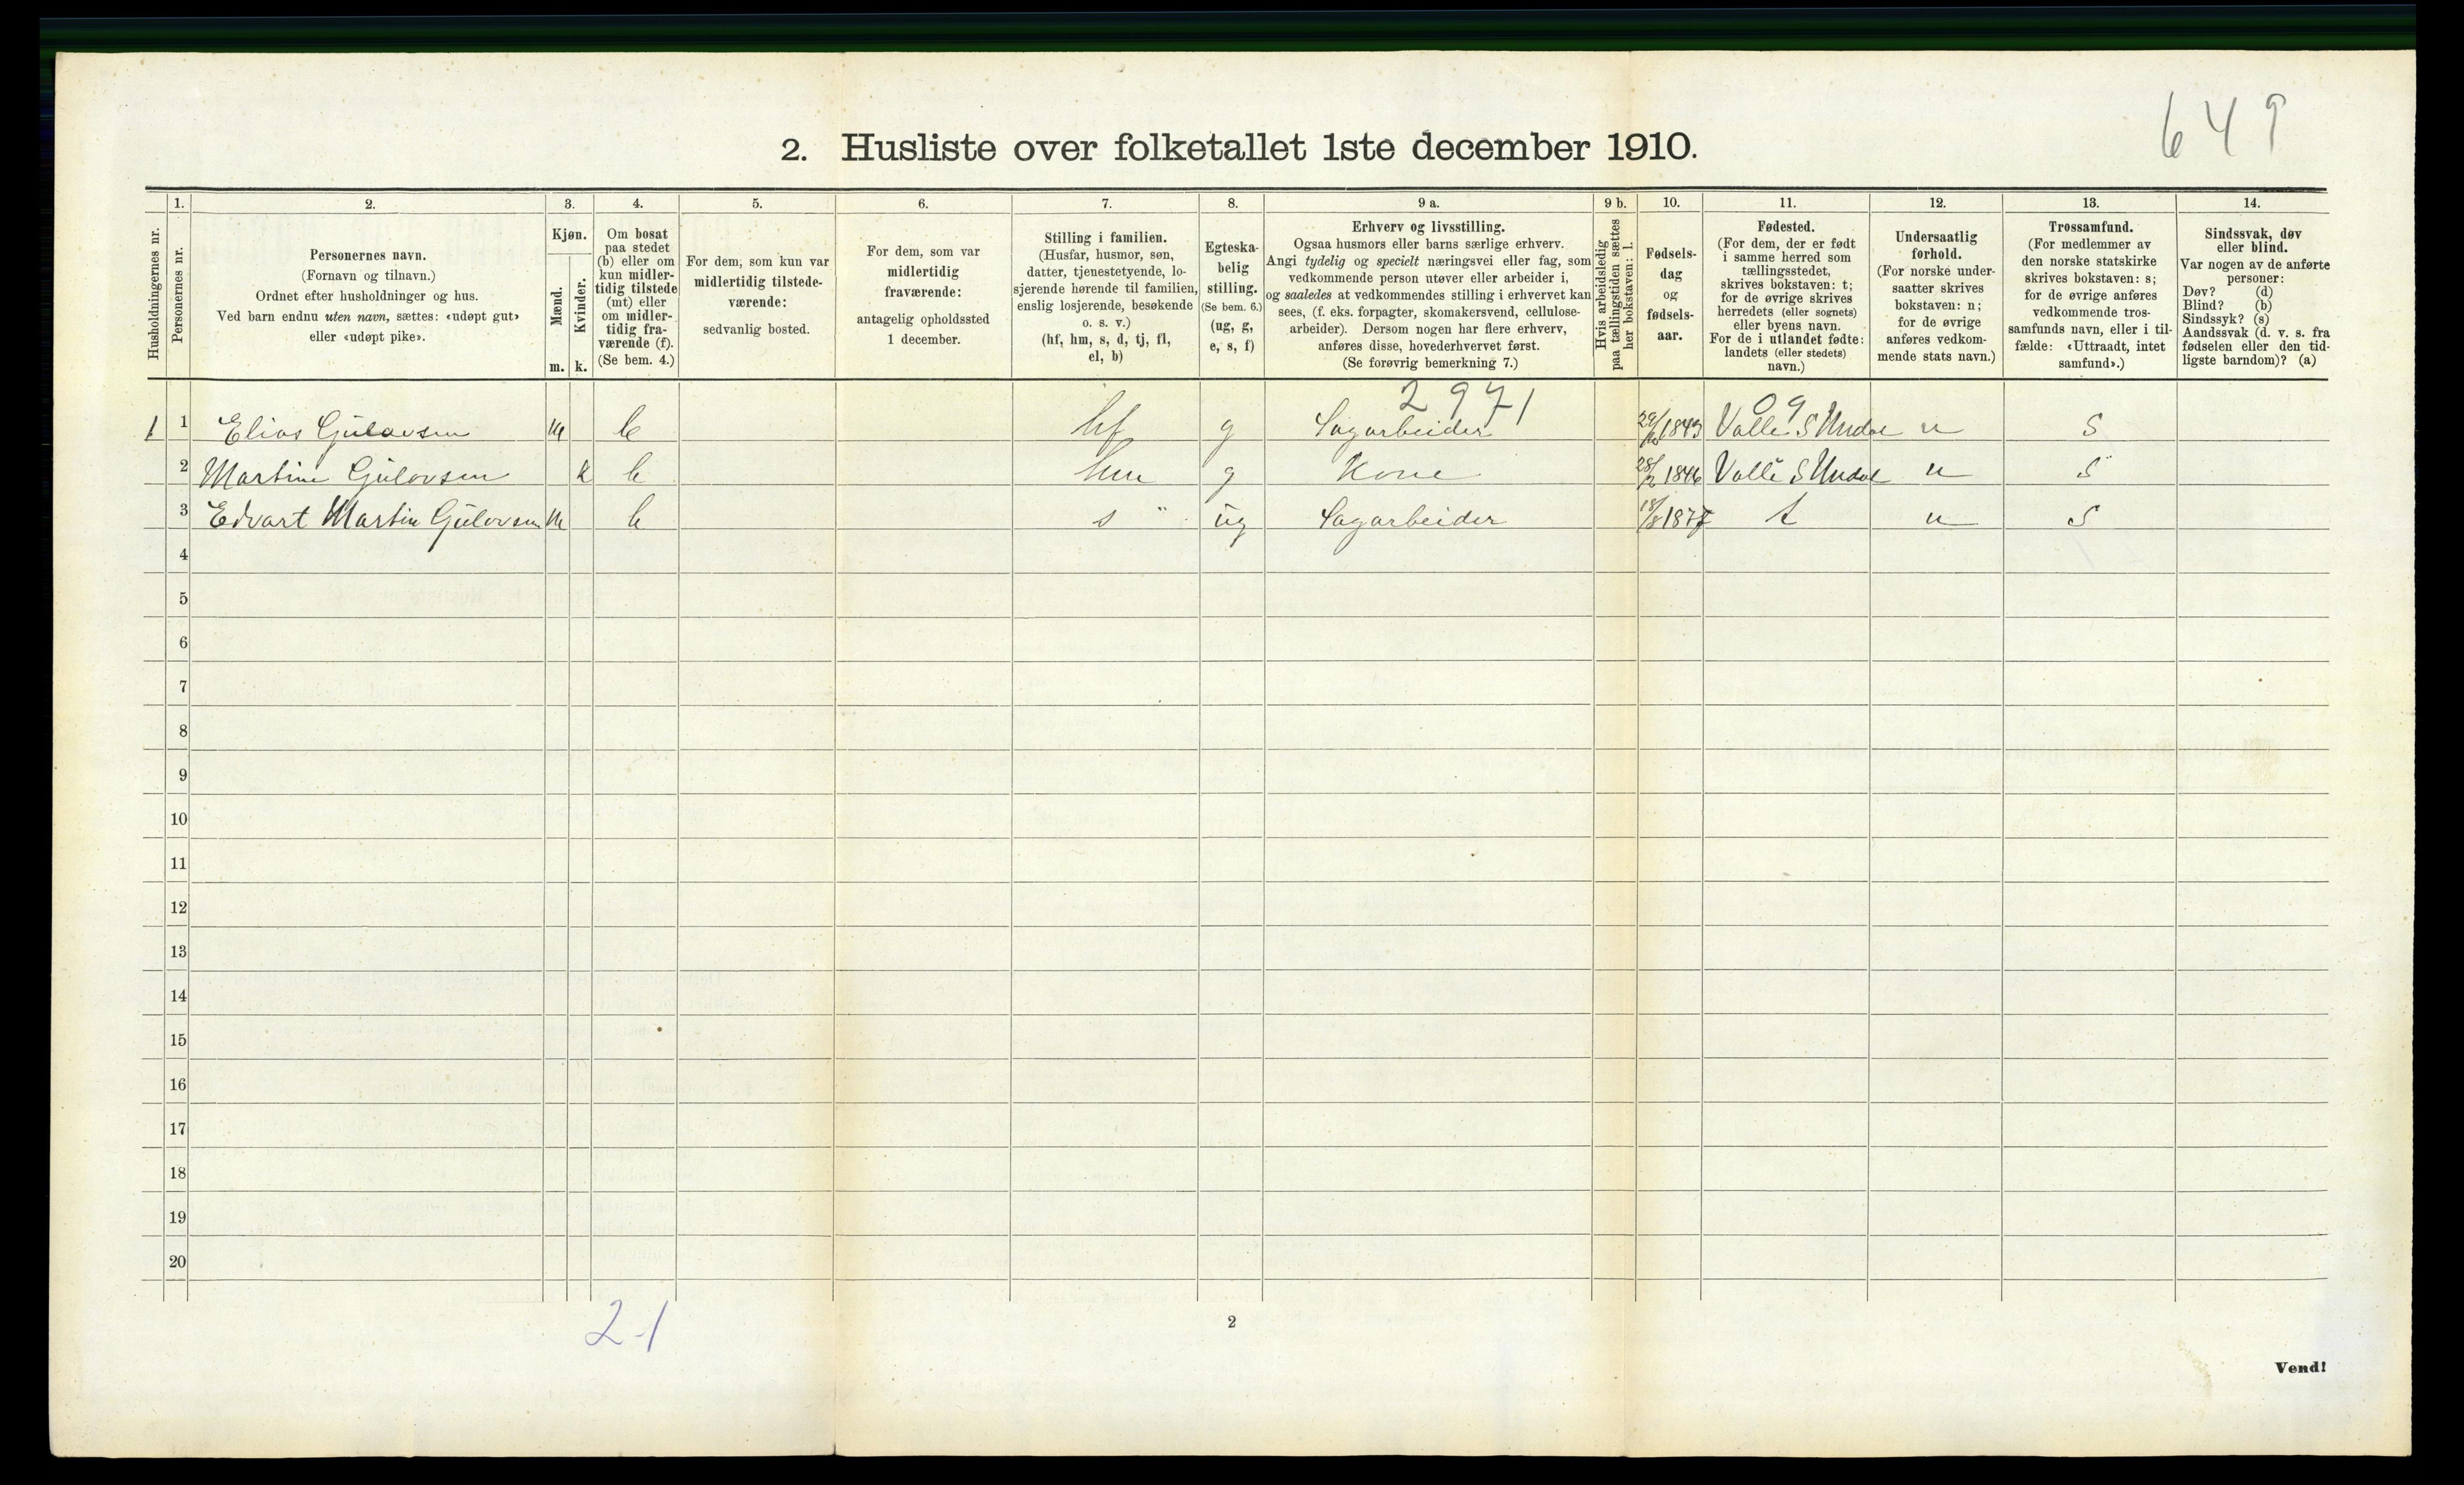 649
2. Husliste over folketallet 1ste december 1910.
Husholdningernes nr.
1. Personernes nr.
2. Personernes navn.
(Fornavn og tilnavn.)
Ordnet efter husholdninger og hus.
Ved barn endnu uten navn, sættes: «udøpt gut»
eller «udøpt pike».
3. Kjøn.
Mænd. Kvinder.
m. k.
4. Om bosat
paa stedet
(b) eller om
kun midler-
tidig tilstede
(mt) eller
om midler-
tidig fra-
værende (f).
(Se bem. 4.)
5. For dem, som kun var
midlertidig tilstede-
værende:
sedvanlig bosted.
6. For dem, som var
midlertidig
fraværende:
antagelig opholdssted
1 december.
7. Stilling i familien.
(Husfar, husmor, søn,
datter, tjenestetyende, lo-
sjerende hørende til familien,
enslig losjerende, besøkende
o. s. v.)
(hf, hm, s, d, tj, fl,
el, b)
8. Egteska-
belig
stilling.
(Se bem. 6.)
(ug, g,
e, s, f)
9 a. Erhverv og livsstilling.
Ogsaa husmors eller barns særlige erhverv.
Angi tydelig og specielt næringsvei eller fag, som
vedkommende person utøver eller arbeider i,
og saaledes at vedkommendes stilling i erhvervet kan
sees, (f. eks. forpagter, skomakersvend, cellulose-
arbeider). Dersom nogen har flere erhverv,
anføres disse, hovederhvervet først.
(Se forøvrig bemerkning 7.)
9 b. Hvis arbeidsledig
paa tællingstiden sættes
her bokstaven: l.
10. Fødsels-
dag
og
fødsels-
aar.
11. Fødested.
(For dem, der er født
i samme herred som
tællingsstedet,
skrives bokstaven: t;
for de øvrige skrives
herredets (eller sognets)
eller byens navn.
For de i utlandet fødte:
landets (eller stedets)
navn.)
12. Undersaatlig
forhold.
(For norske under-
saatter skrives
bokstaven: n;
for de øvrige
anføres vedkom-
mende stats navn.)
13. Trossamfund.
(For medlemmer av
den norske statskirke
skrives bokstaven: s;
for de øvrige anføres
vedkommende tros-
samfunds navn, eller i til-
fælde: «Uttraadt, intet
samfund».)
14. Sindssvak, døv
eller blind.
Var nogen av de anførte
personer:
Døv? (d)
Blind? (b)
Sindssyk? (s)
Aandssvak (d. v. s. fra
fødselen eller den tid-
ligste barndom)? (a)
2971 09
1 1 Elias Gulovsen m b hf g Sagarbeider 1843 Valle S Undal n S
2 Martine Gulovsen k b hm g Kone 28/2 1846 Valle S Undal n S
3 Edvart Martin Gulovsen m b s ug Sagarbeider 18/8 1877 t n S
4
5
6
7
8
9
10
11
12
13
14
15
16
17
18
19
20
2-1
2
Vend!